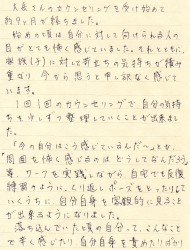 大長さんのカウンセリングを受け始めて
約9ヶ月が経ちました。
始めの頃は自分に対して向けられる人の
目がとても怖く感じていました。それとともに、
(様子)に対して苛立ちの気持ちが積み
重なり 今から思うと申し訳なく感じて
います。
1回1回のカウンセリングで自分の気持
ちを少しずつ整理していくことが出来ま
した。
「今の自分はこう感じているんだ」とか、
「周囲を怖く感じるのは どうしてなんだろう」
等、ワークを実践しながら 自宅でも反復
練習のように、くり返し ポーズをとったりして
いくうちに 自分自身を客観的に見ること
が出来るようになりました。
落ち込んでいた頃の自分って、こんなこと
で辛く感じたり 自分自身を責め